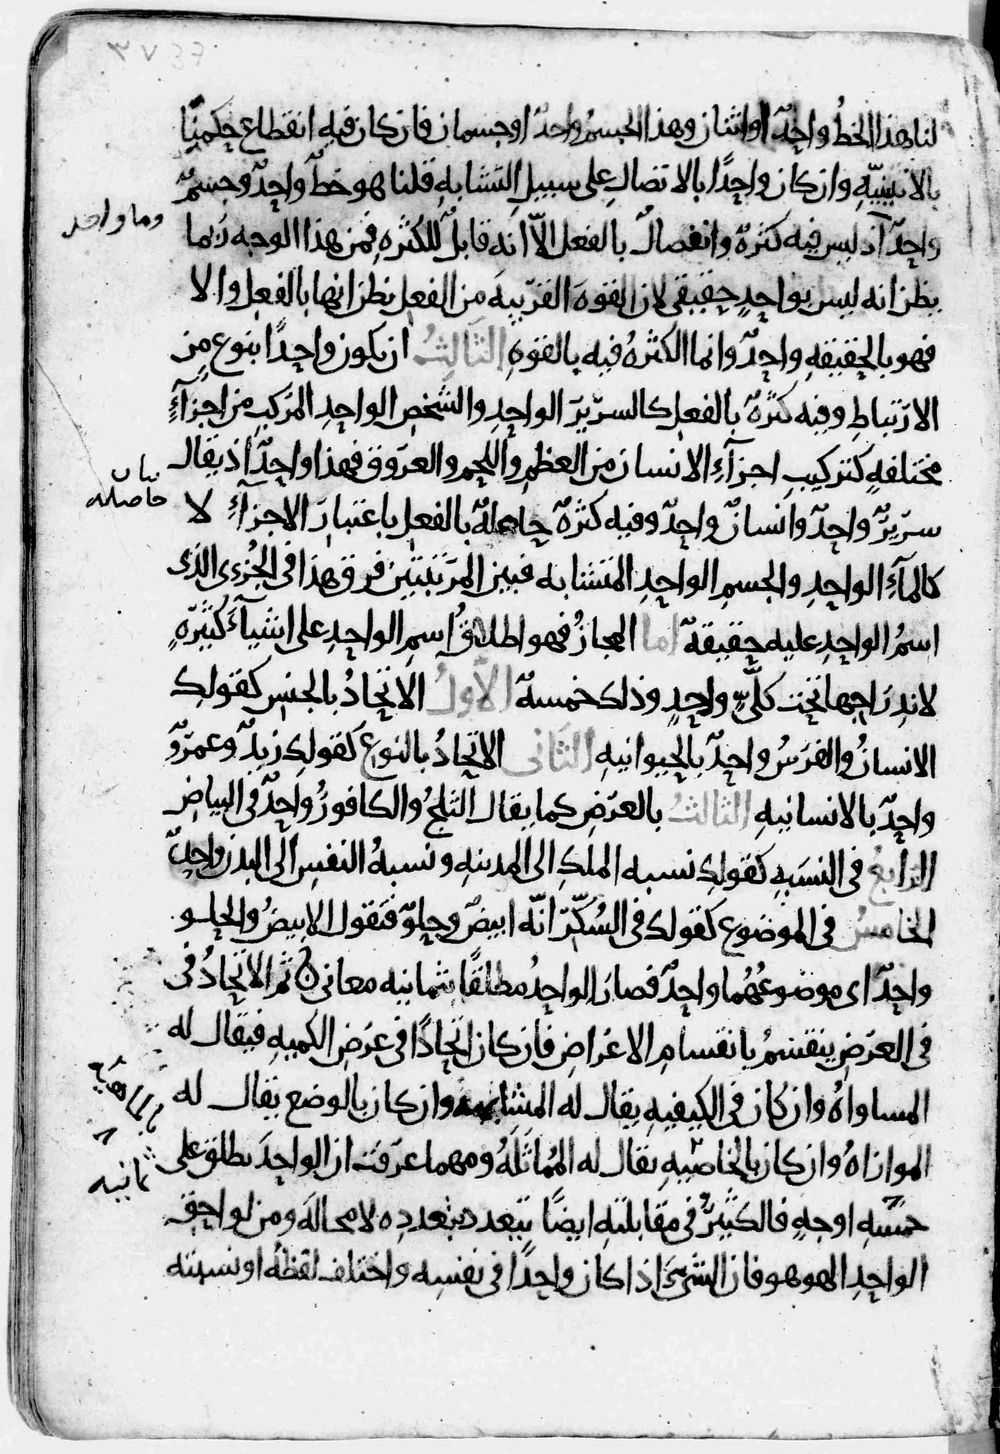 ٣٧ 37
لنا هذا الخطُ واحِدٌ اواثنان وهذا الجسمُ واحدٌ اوجسمان فان كان فيه انقطاع حكمنا
بالاثنينيّهِ وان كان واحِدًا بالاتصالِ على سبيلِ التشابهِ قلنا هو خطٌ واحِدٌ وجسمٌ
واحِدٌ اذ ليس فيه كثرةٌ وانفصالٌ بالفعل الّا انه قابلٌ للكثرهِ فمن هذا الوجه ربما
وماواحد
يظن انه ليس بواحِدٍ حِقيقى لان القوهَ القريبهَ من الفعلِ نظن انها بالفعلِ والا
فهو بالحِقيقهِ واحِدٌ وانما الكثرهُ فيه بالقوهِ الثالثُ ان يكون واحِدًا بنوع مِن
الارتباطِ وفيه كثرهٌ بالفعلِ كالسريرِ الواحِدِ والشخصِ الواحِدِ المركبِ من اجزآءٍ
مختلفهٍ كتركيبِ اجزآءِ الانسان من العظمِ واللحِمِ والعروق فهذا واحِدٌ اذ يقال
سريرٌ واحِدٌ وانسانٌ واحِدٌ وفيه كثرهٌ حاصلهٌ بالفعلِ باعتبارِ الاجزآءِ لا
حاصله
كالمآءِ الواحِدِ والجسمِ الواحِدِ المتشابه فبين المرتبتين فرق هذا فى الجُزءى الذى
اسمُ الواحِدِ عليه حِقيقهٌ اما المجازُ فهو اطلاقُ اسمِ الواحِدِ على اشيآءَ كثيرهٍ
لاندراجِها تحِت كلّىٍّ واحِدٍ وذلك خمسهٌ الاوّلُ الاتحِادُ بالجنسِ كقولك
الانسانُ والفرسُ واحِدٌ بالحِيوانيهِ الثانى الاتحِادُ بالنوع كقولك زيدٌ وعمروٌ
واحِدٌ بالانسانيهِ الثالثُ بالعرضِ كما يقال الثلجُ والكافورُ واحِدٌ فى البياض
الرابعُ فى النسبهِ كقولك نسبه الملكِ الى المدينهِ ونسبهُ النفسِ الى البدن واحِدٌ
الخامسُ فى الموضوع كقولك فى السُكّرِ انّه ابيضٌ وحِلوٌ فتقول الابيضُ والحِلو
واحِدٌ اى موضوعُهُما واحِدٌ فصار الواحِدُ مطلقًا بثمانيه معانى ثم الاتحِادُ فى
فى العرَضِ ينقسمُ بانقسامِ الاعراضِ فان كان اتحِادًا فى عرَضِ الكميهِ فيقال له
المساواهُ وان كان فى الكيفيهِ يقال له المشابهه وان كان بالوضع يقال له
الموازاهُ وان كان بالخاصّيهِ يقال له المُماثَلَهُ ومهما عرَفت ان الواحِدَ يطلق على
بالماهيه
٨
ثمانيه
خمسهِ اوجهٍ فالكثيرُ فى مقابلتهِ ايضًا يتعدد بتعددِه لامحالهَ ومن لواحِق
الواحِدِ الهوهو فان الشىءَ اذا كان واحِدًا فى نفسه واختلف لفظهُ اونسبته